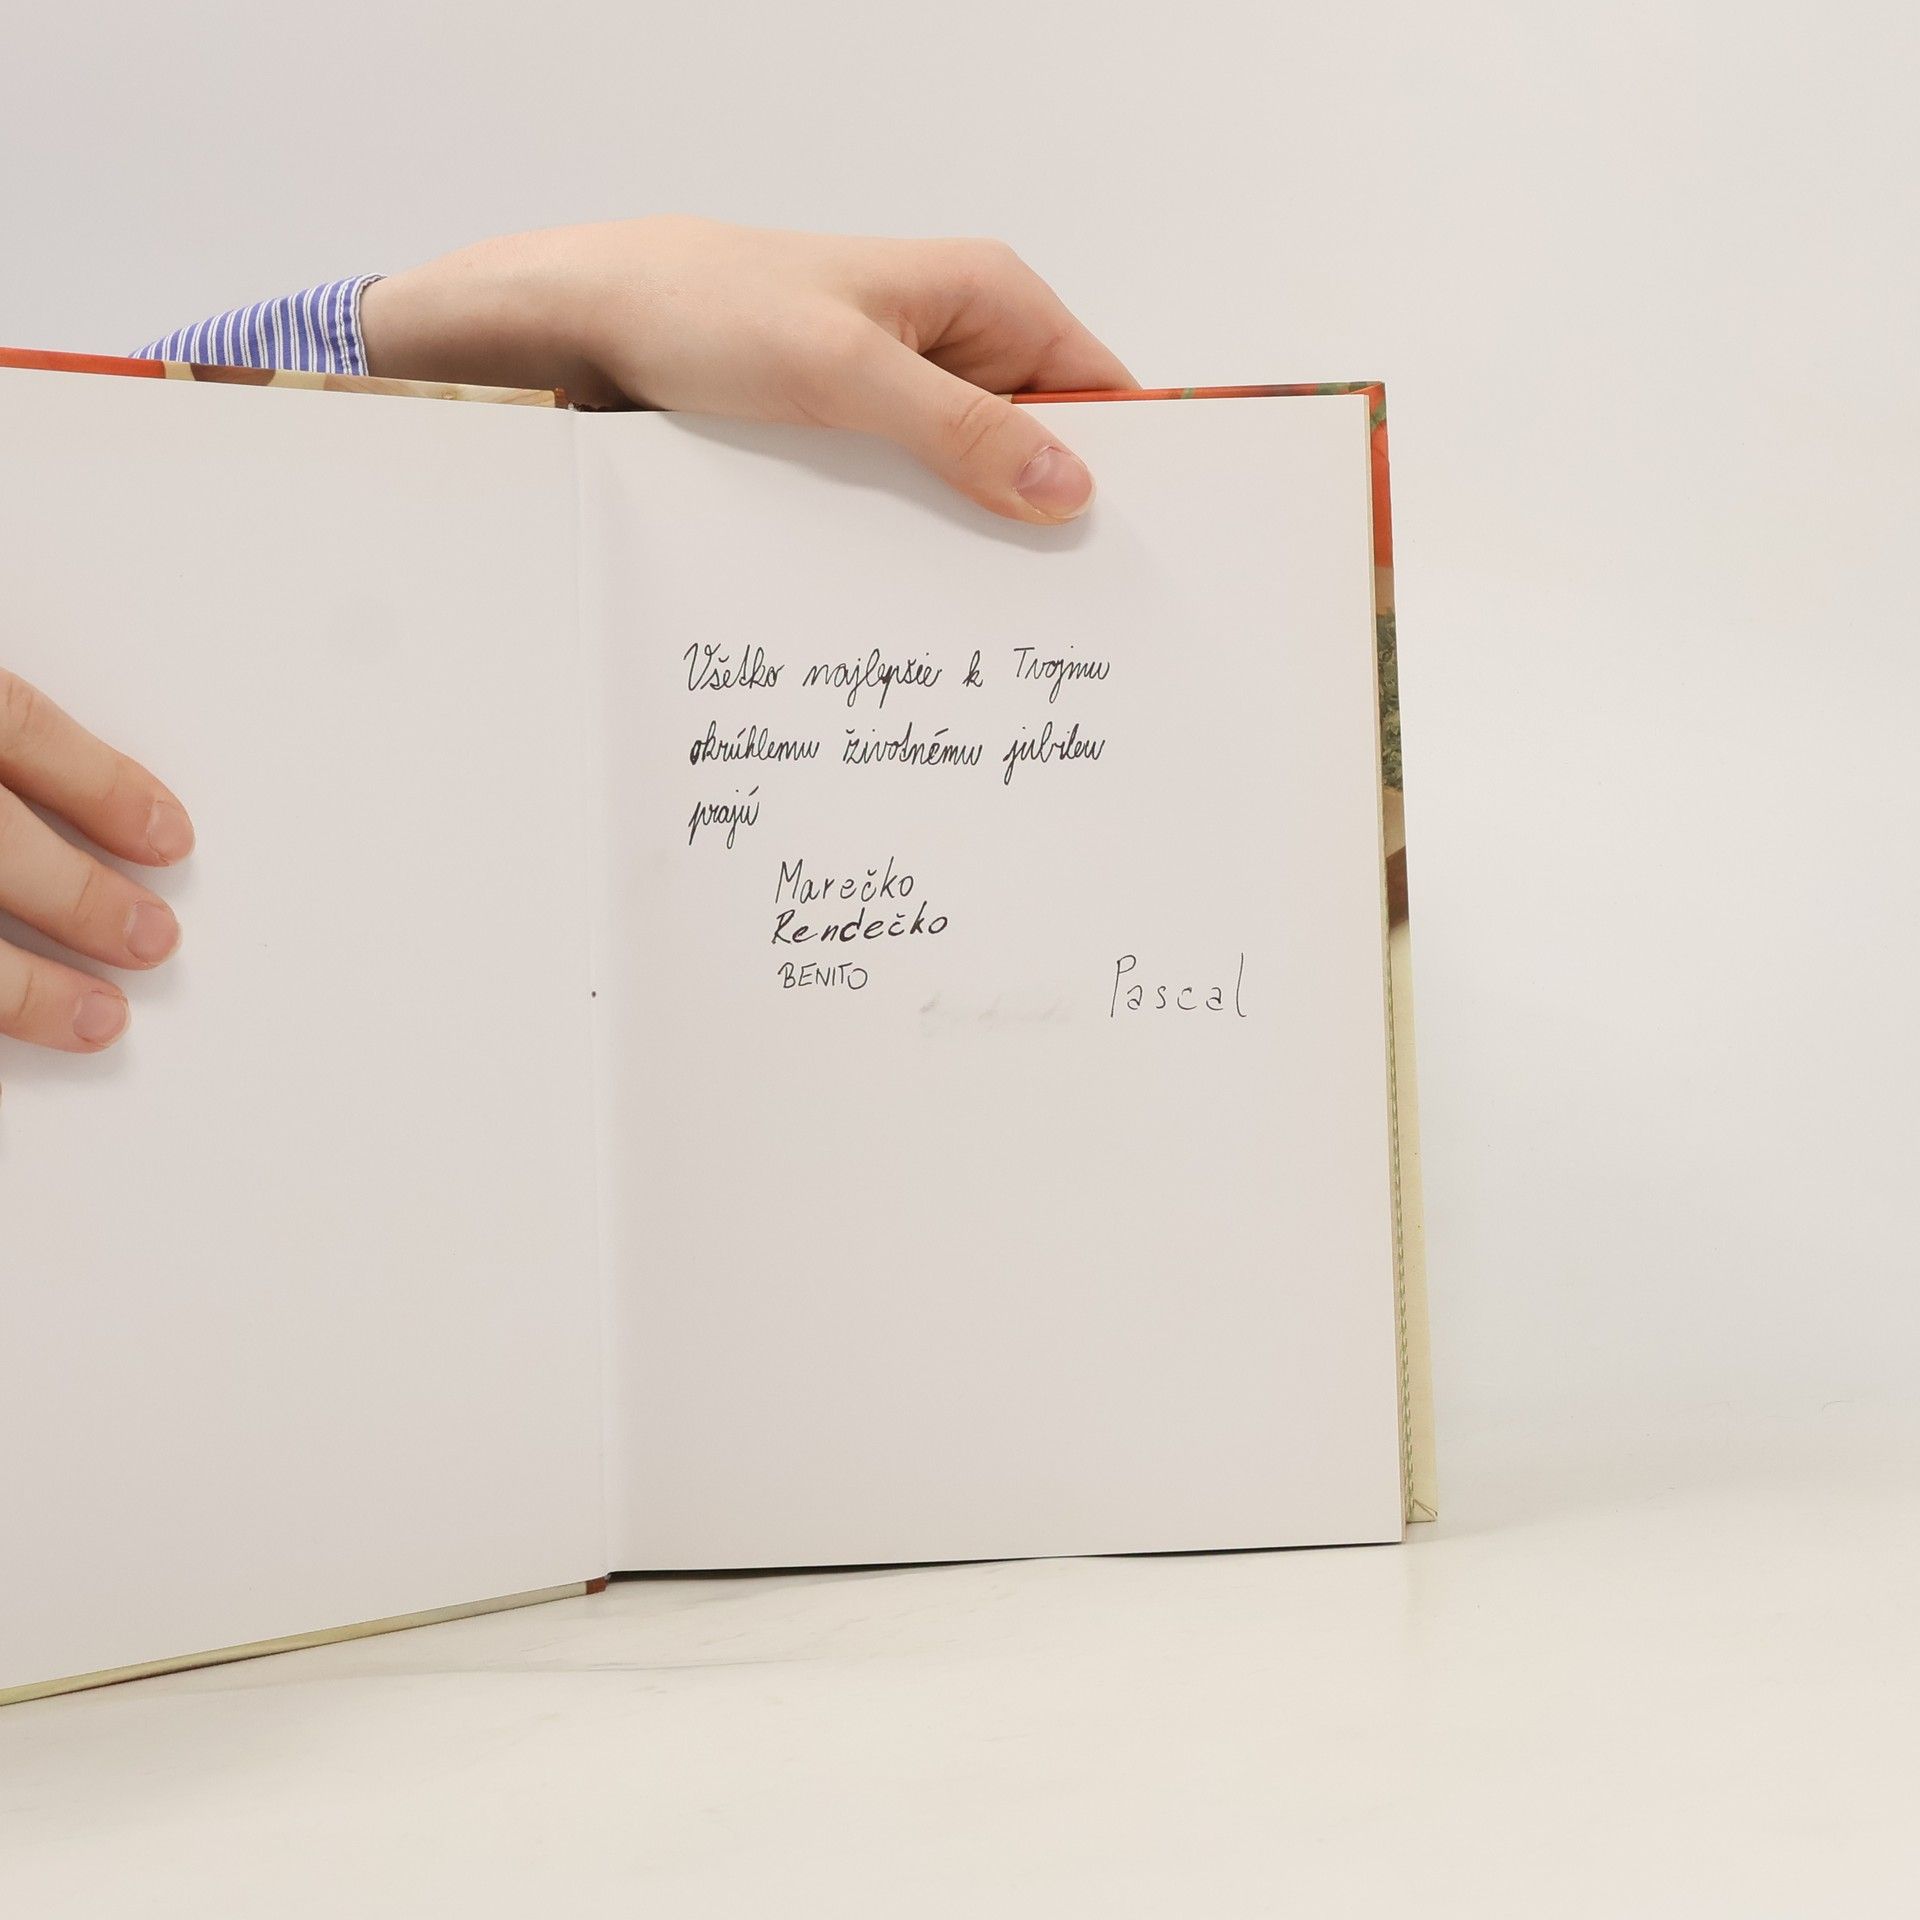 Všetko najlepšie k Tvojmu
okrúhlemu životnému jubileu
prajú
Marečko
Rendečko
BENITO
Pascal